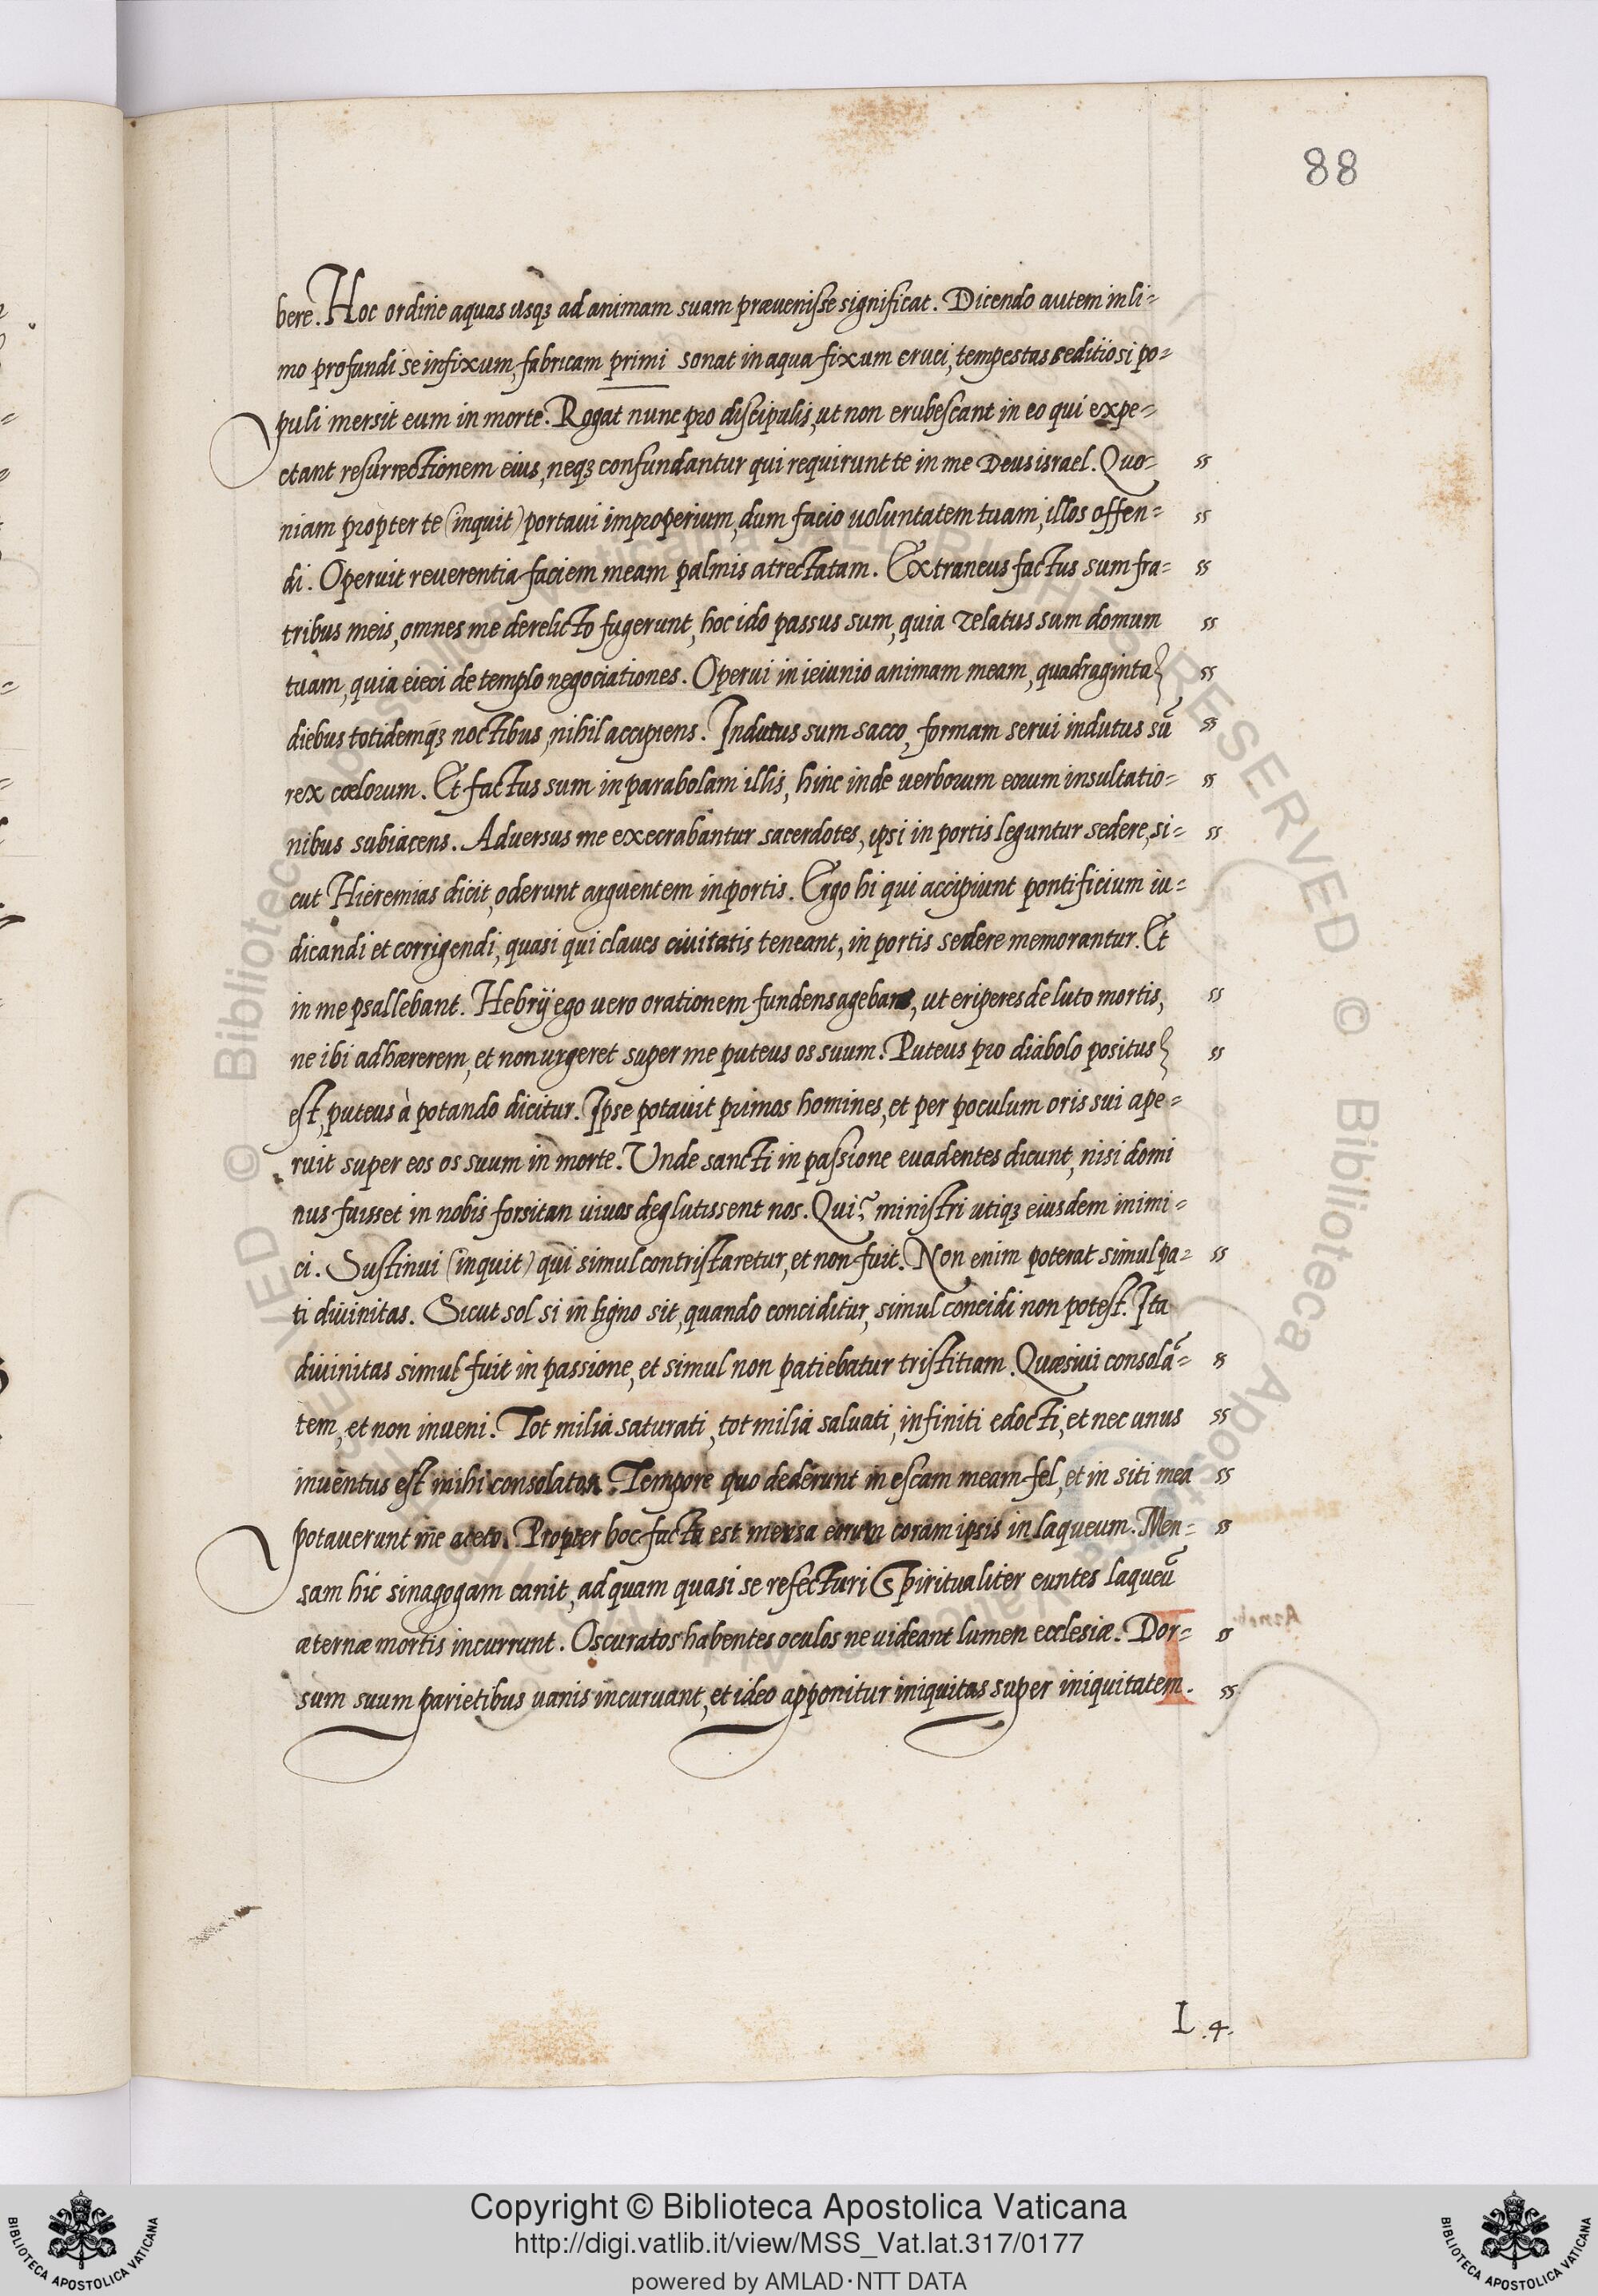 88
bere. Hoc ordine aquas usqꝫ ad animam suam prævenisse significat. Dicendo autem in li=
mo profundi se infixum, fabricam primi sonat in aqua fixum cruci, tempestas seditiosi po=
puli mersit eum in morte. Rogat nunc pro discipulis, ut non erubescant in eo qui expe=
ctant resurrectionem eius, neqꝫ confundantur qui requirunt te in me Deus israel. Quo= ss
niam propter te (inquit) portavi improperium, dum facio voluntatem tuam, illos offen= ss
di. Operuit reverentia faciem meam palmis atrectatam. Extraneus factus sum fra= ss
tribus meis, omnes me derelicto fugerunt, hoc ido passus sum, quia zelatus sum domum ss
tuam, quia eieci de templo negociationes. Operui in ieiunio animam meam, quadraginta ss
diebus totidemqꝫ noctibus, nihil accipiens. Indutus sum sacco, formam servi indutus sũ ss
rex cœlorum. Et factus sum in parabolam illis, hinc inde verborum eorum insultatio= ss
nibus subiacens. Adversus me execrabantur sacerdotes, ipsi in portis leguntur sedere, si= ss
cut Hieremias dicit, oderunt arguentem in portis. Ergo hi qui accipiunt pontificium iu=
dicandi et corrigendi, quasi qui claves civitatis teneant, in portis sedere memorantur. Et
in me psallebant. Hebrij ego vero orationem fundens agebam, ut eriperes de luto mortis, ss
ne ibi adhærerem, et non urgeret super me puteus os suum. Puteus pro diabolo positus ss
est, puteus à potando dicitur. Ipse potavit primos homines, et per poculum oris sui ape=
ruit super eos os suum in morte. Unde sancti in passione evadentes dicunt, nisi domi
nus fuisset in nobis forsitan vivos deglutissent nos. Qui? ministri utiqꝫ eiusdem inimi=
ci. Sustinui (inquit) qui simul contristaretur, et non fuit. Non enim poterat simul pa= ss
ti divinitas. Sicut sol si in ligno sit, quando conciditur, simul concidi non potest. Ita
divinitas simul fuit in passione, et simul non patiebatur tristitiam. Quæsivi consolã= s
tem, et non inveni. Tot milia saturati, tot milia salvati, infiniti edocti, et nec unus ss
inventus est mihi consolator. Tempore quo dederunt in escam meam fel, et in siti mea ss
potaverunt me aceto. Propter hoc facta est mensa eorum coram ipsis in laqueum. Men= ss
sam hic sinagogam canit, ad quam quasi se refecturi Spiritualiter euntes laqueũ
æternæ mortis incurrunt. Oscuratos habentes oculos ne videant lumen ecclesiæ. Dor= ss
sum suum parietibus vanis incurvant, et ideo apponitur iniquitas super iniquitatem. ss
L .4.
Copyright © Biblioteca Apostolica Vaticana
http://digi.vatlib.it/view/MSS_Vat.lat.317/0177
powered by AMLAD·NTT DATA
BIBLIOTECA APOSTOLICA VATICANA
BIBLIOTECA APOSTOLICA VATICANA